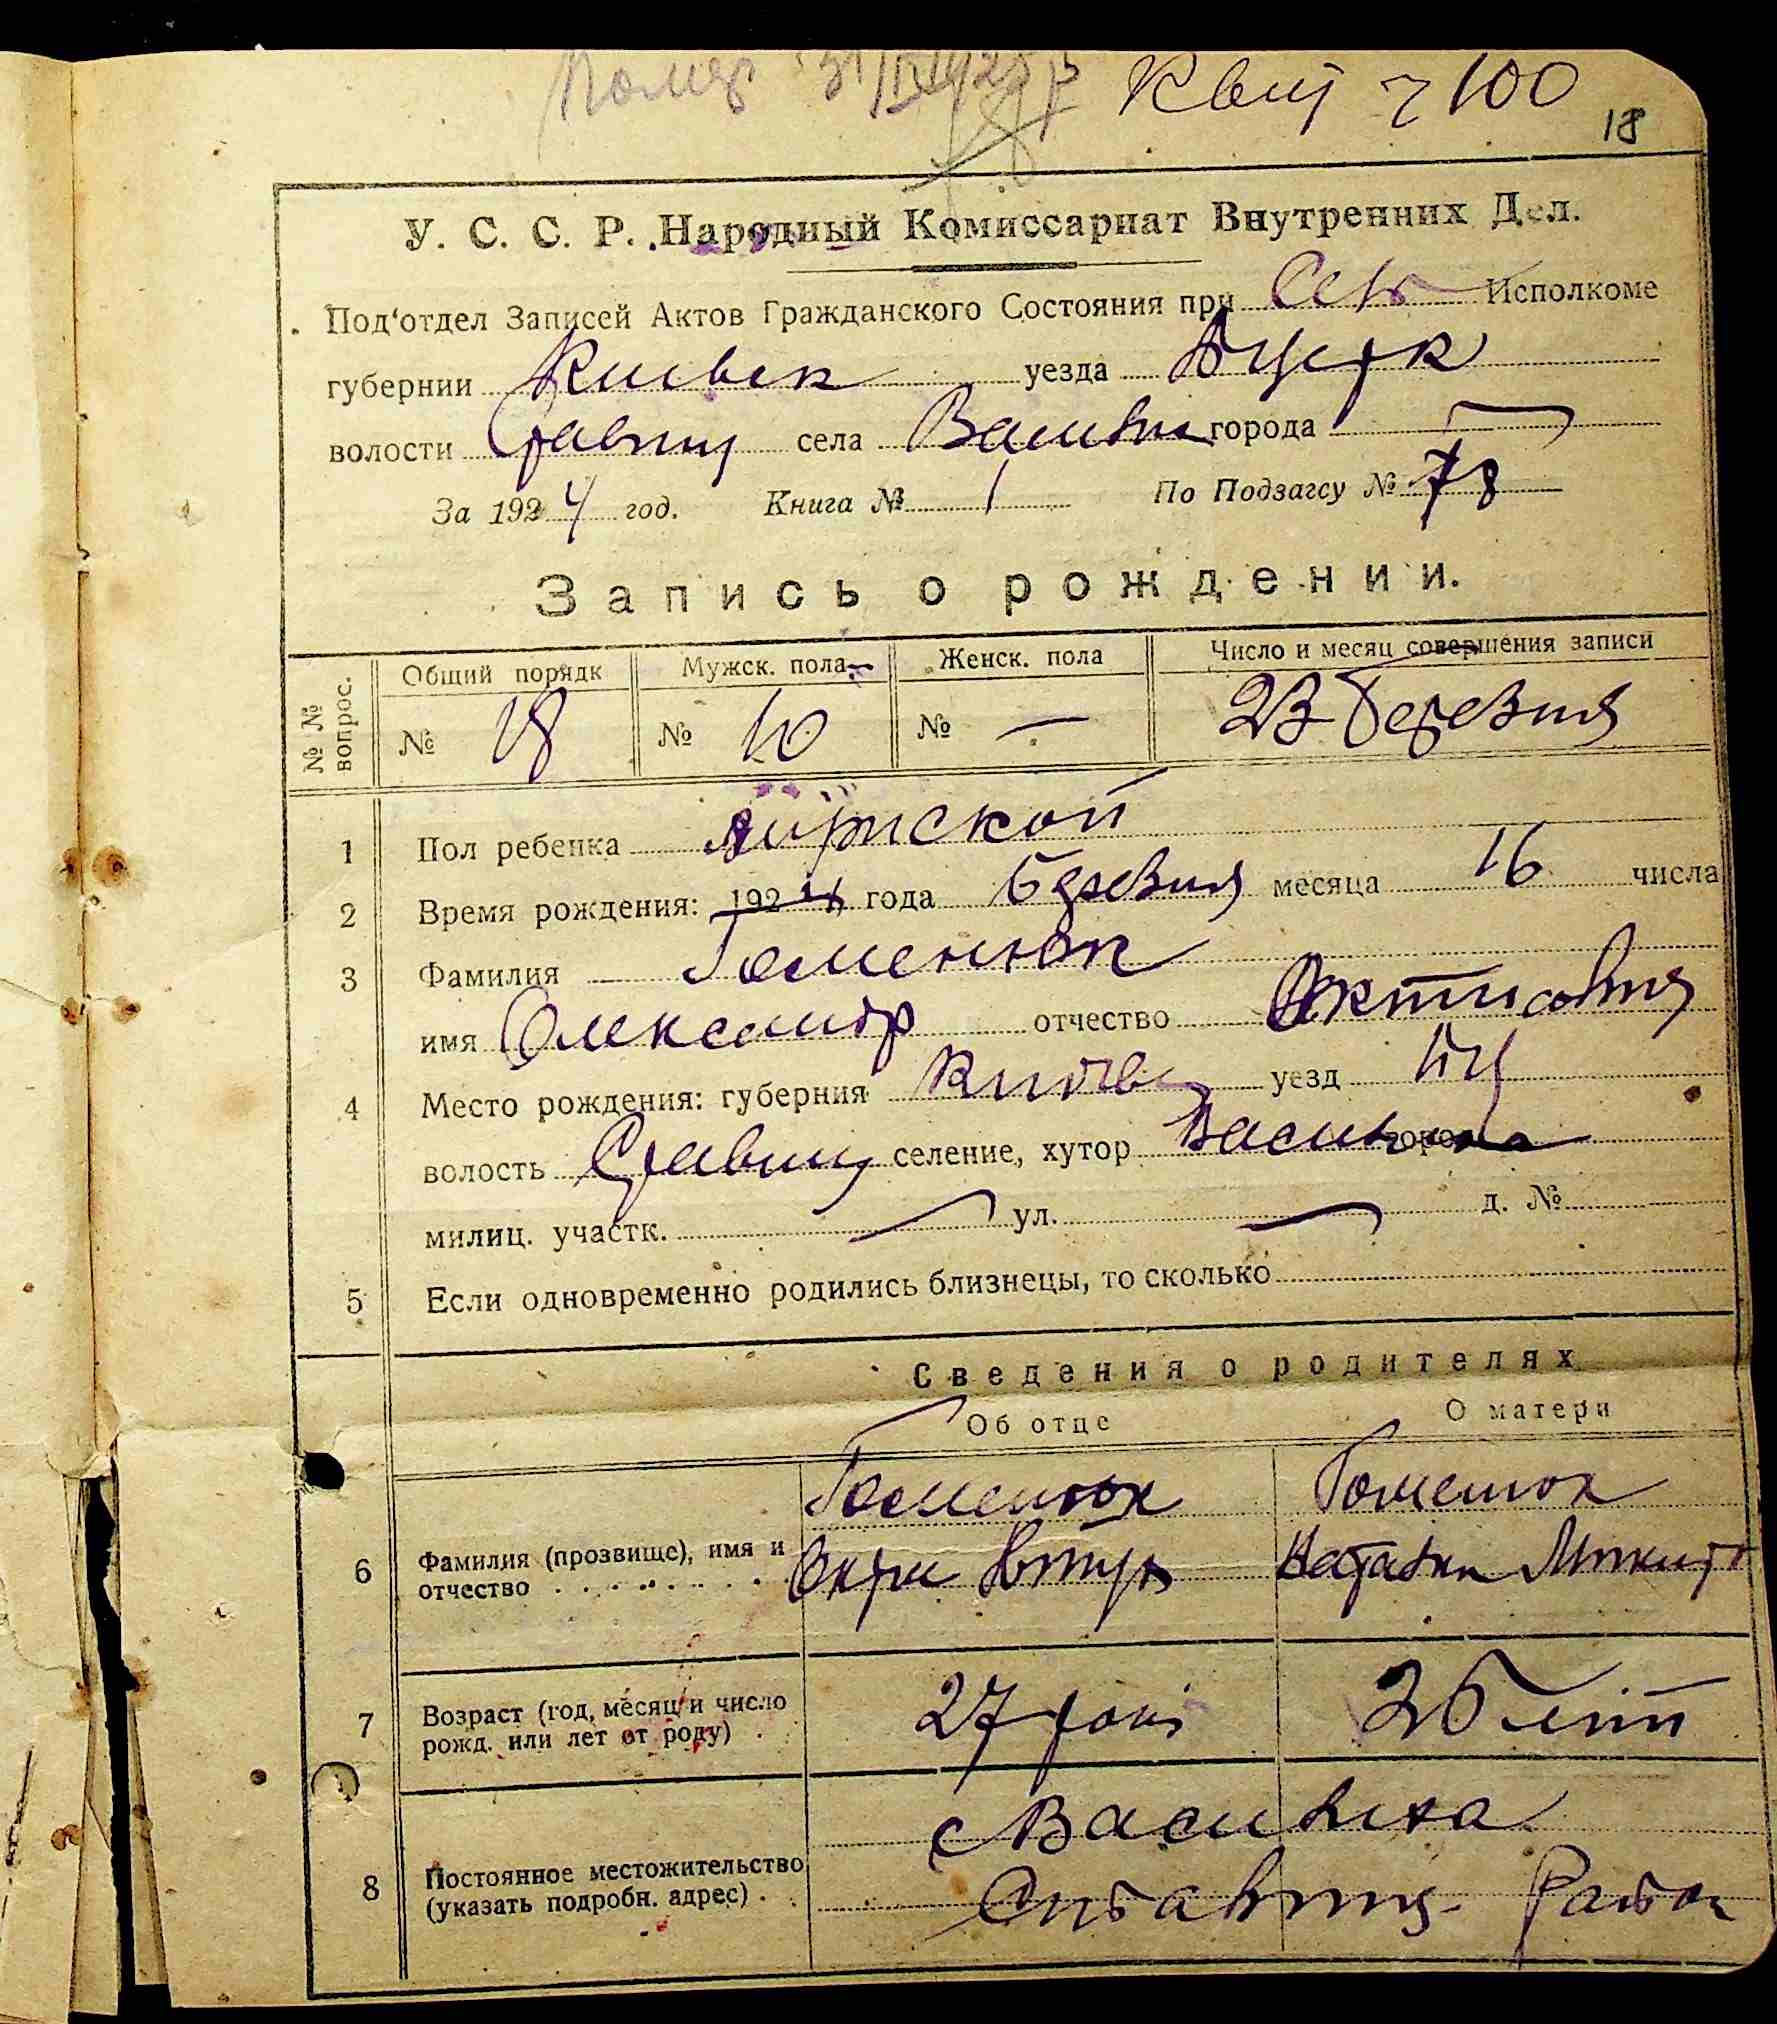 Помер 31/
Квит ч 100
18
У. С. С. Р. Народный Комиссариат Внутренних Дел.
Под'отдел Записей Актов Гражданского Состояния при Исполкоме
губернии Киевск уезда Б Церк
волости Ставищ села города —
За 1924 год. Книга № 1 По Подзагсу № 78
Запись о рождении.
№ № вопрос. Общий порядк Мужск. пола Женск. пола Число и месяц совершения записи
№ 18 № 10 № — 23 Березня
1 Пол ребенка
2 Время рождения: 1924 года Березня месяца 16 числа
3 Фамилия Гоменюк
имя Олександр отчество
4 Место рождения: губерния уезд БЦ
волость Ставищ селение, хутор Василиха
милиц. участк. — ул. — д. №
5 Если одновременно родились близнецы, то сколько
Сведения о родителях
Об отце О матери
Гоменюк Гоменюк
6 Фамилия (прозвище), имя и
отчество
7 Возраст (год, месяц и число 27 років 26 літ
рожд. или лет от роду)
с Василиха
8 Постоянное местожительство
(указать подробн. адрес) Район